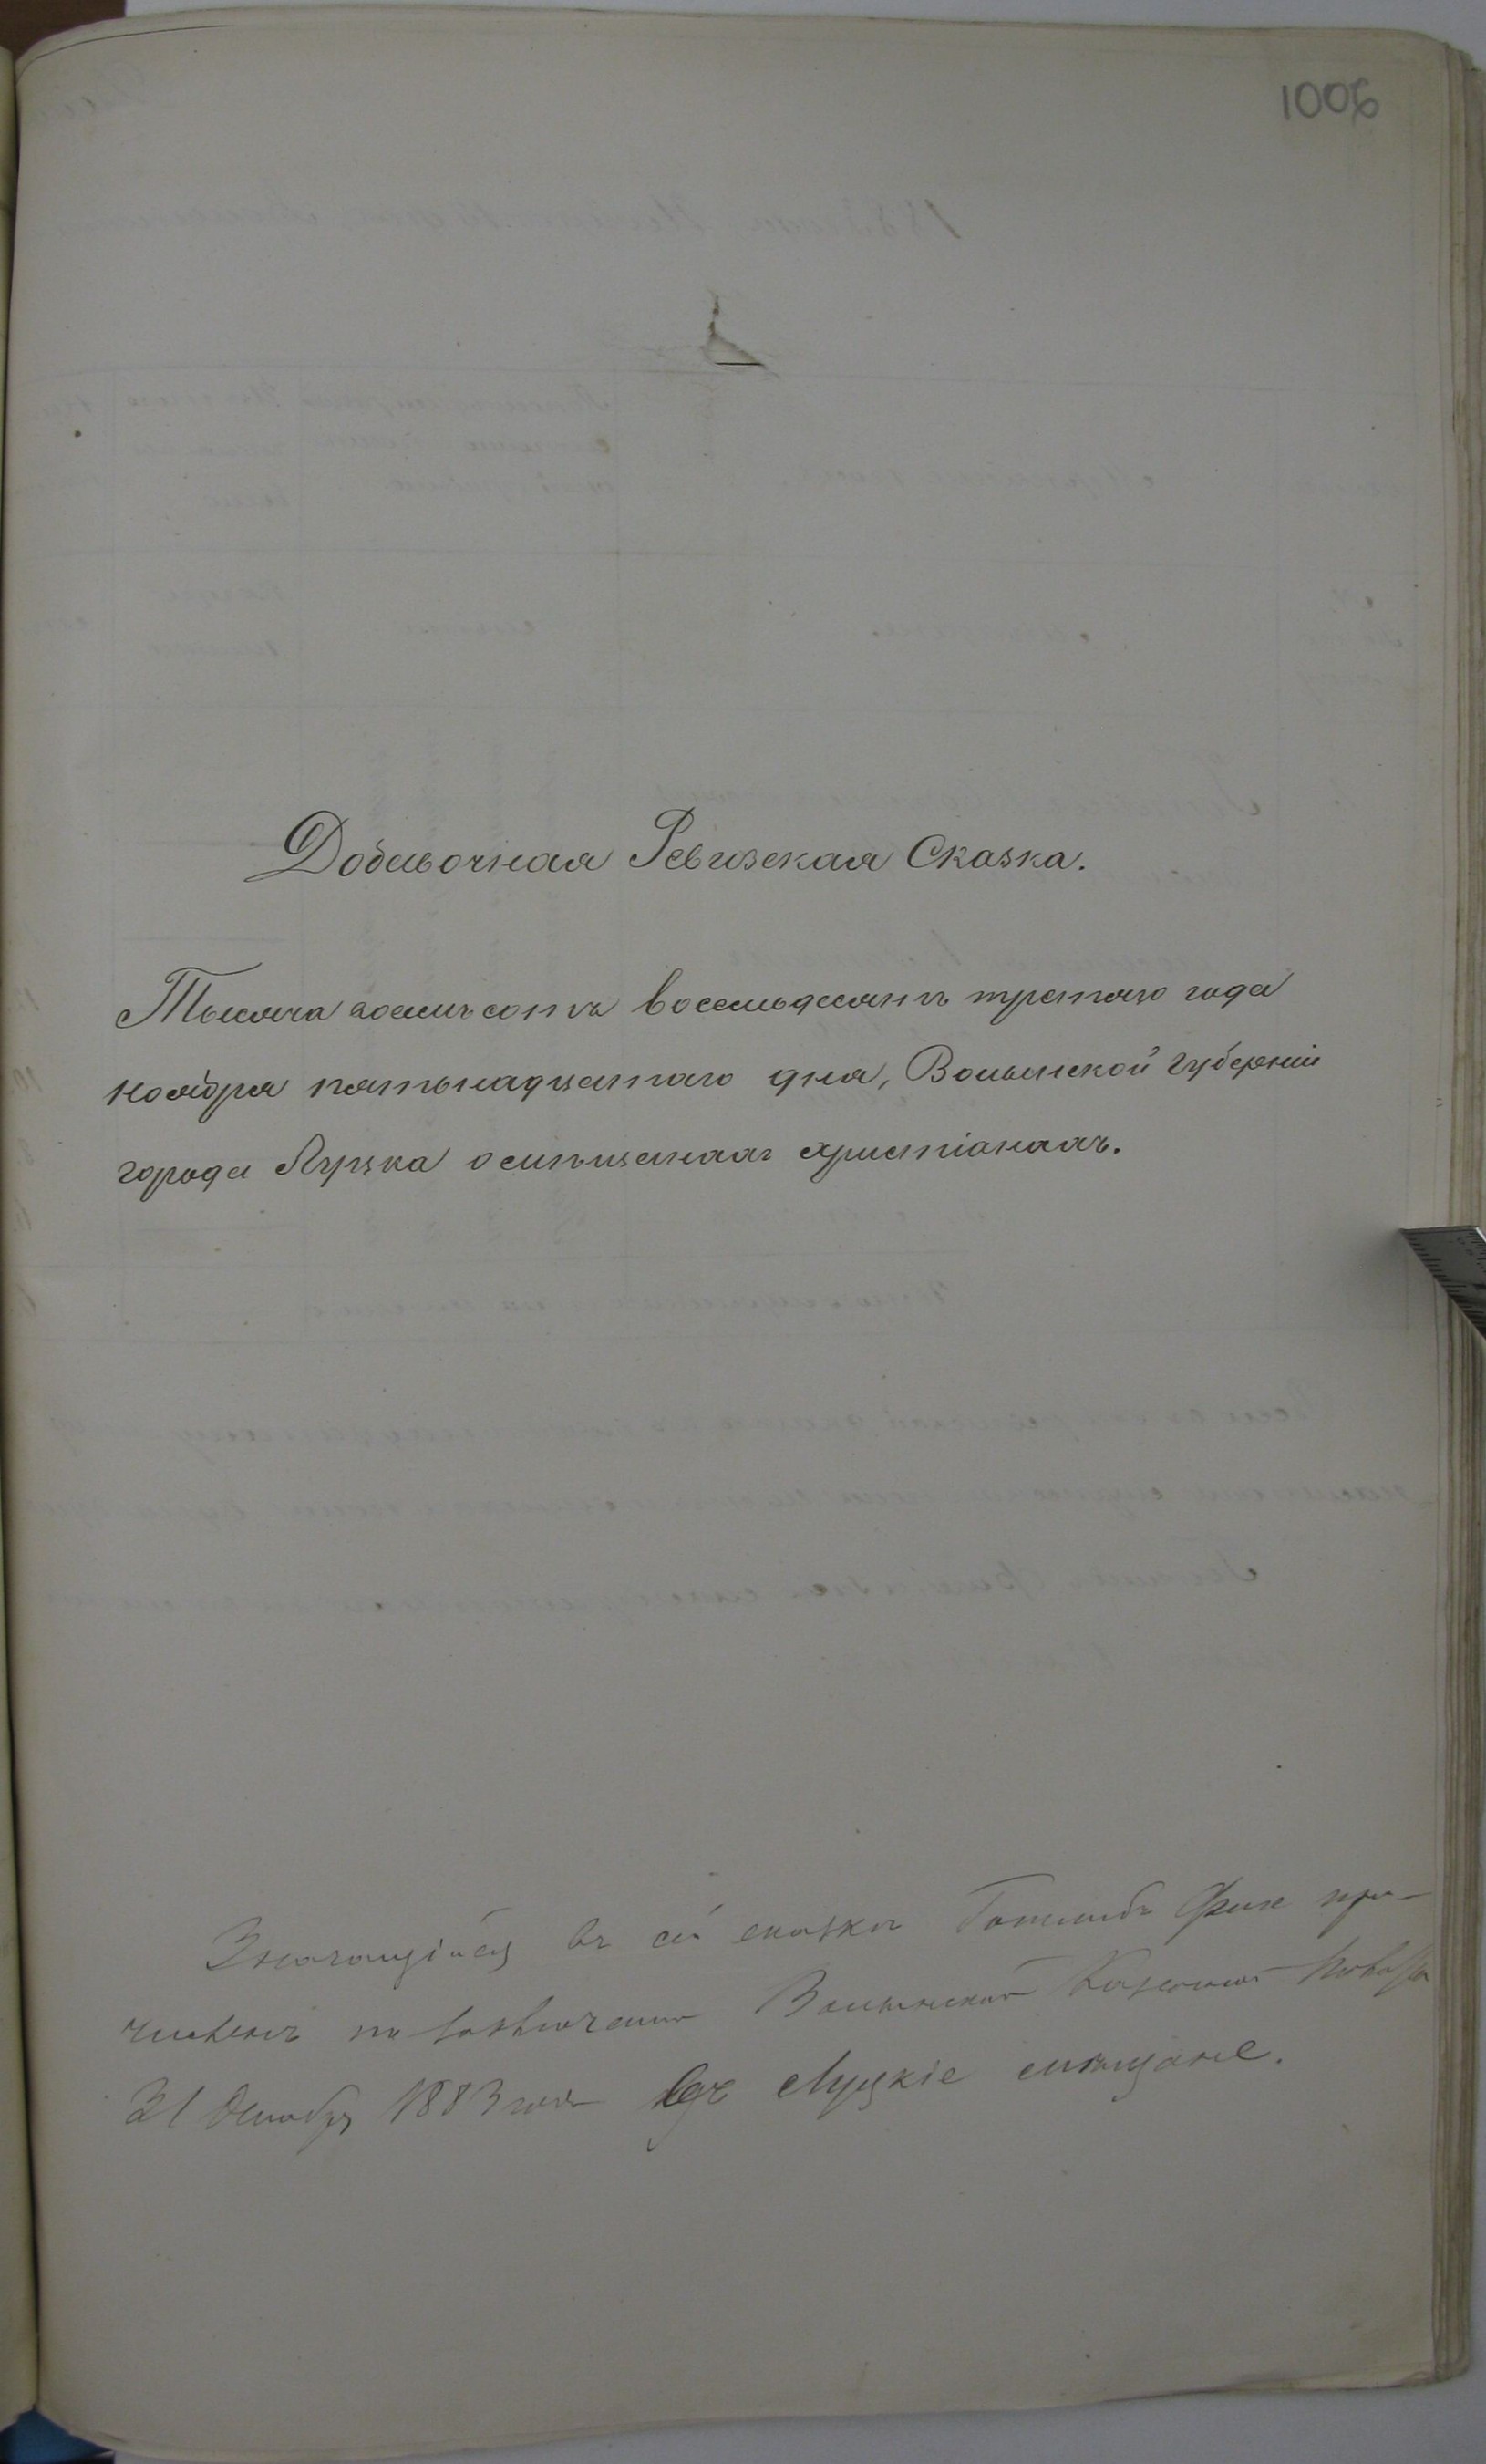 1006
Добавочная Ревизская Сказка.
Тысяча восемьсотъ восемьдесятъ третьяго года
ноября пятьнадцатаго дня, Волынской губерніи
города Луцка о мѣщанахъ христіанахъ.
Значащійся въ сей сказкѣ Готлибъ Финк при-
численъ по Волынской Казенной Палаты
31 1883 года въ Луцкіе мѣщане.